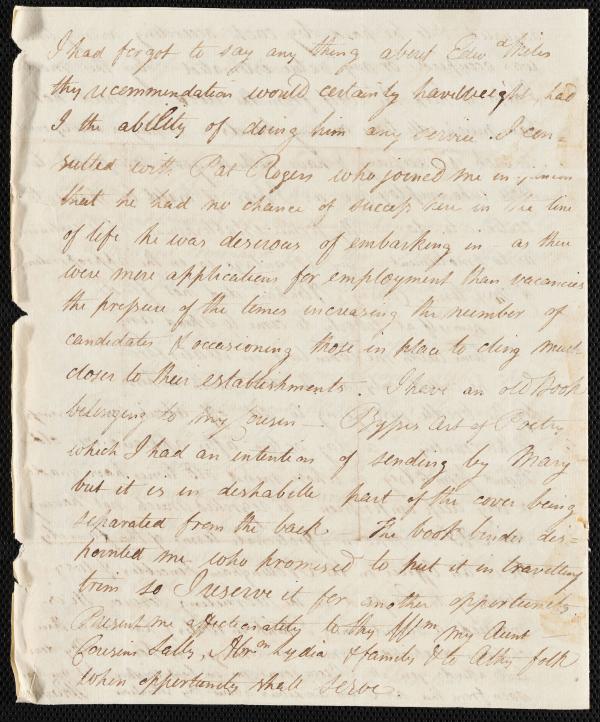 I had forgot to say any thing about Edwd
thy recommendation would certainly have weight, had
I the ability of doing him any service. I con=
sulted with Pat Rogers who joined me in opinion
that he had no chance of success here in the line
of life he was desirous of embarking in - as there
were more applications for employment than vacancies
the pressure of the times increasing the number of
candidates & occasioning those in place to cling much
closer to their establishments. I have an old Book
belonging to my Cousin - Bysses Art of Poetry
which I had an intention of sending by Mary
but it is in deshabille part of the cover being
separated from the back - The book binder dis=
=pointed me who promised to put it in travelling
trim so I reserve it for another opportunity
Present me affectionately to thy my Aunt
Cousins Sally, Abrm Lydia & family & to Athy folk
when opportunity shall serve.